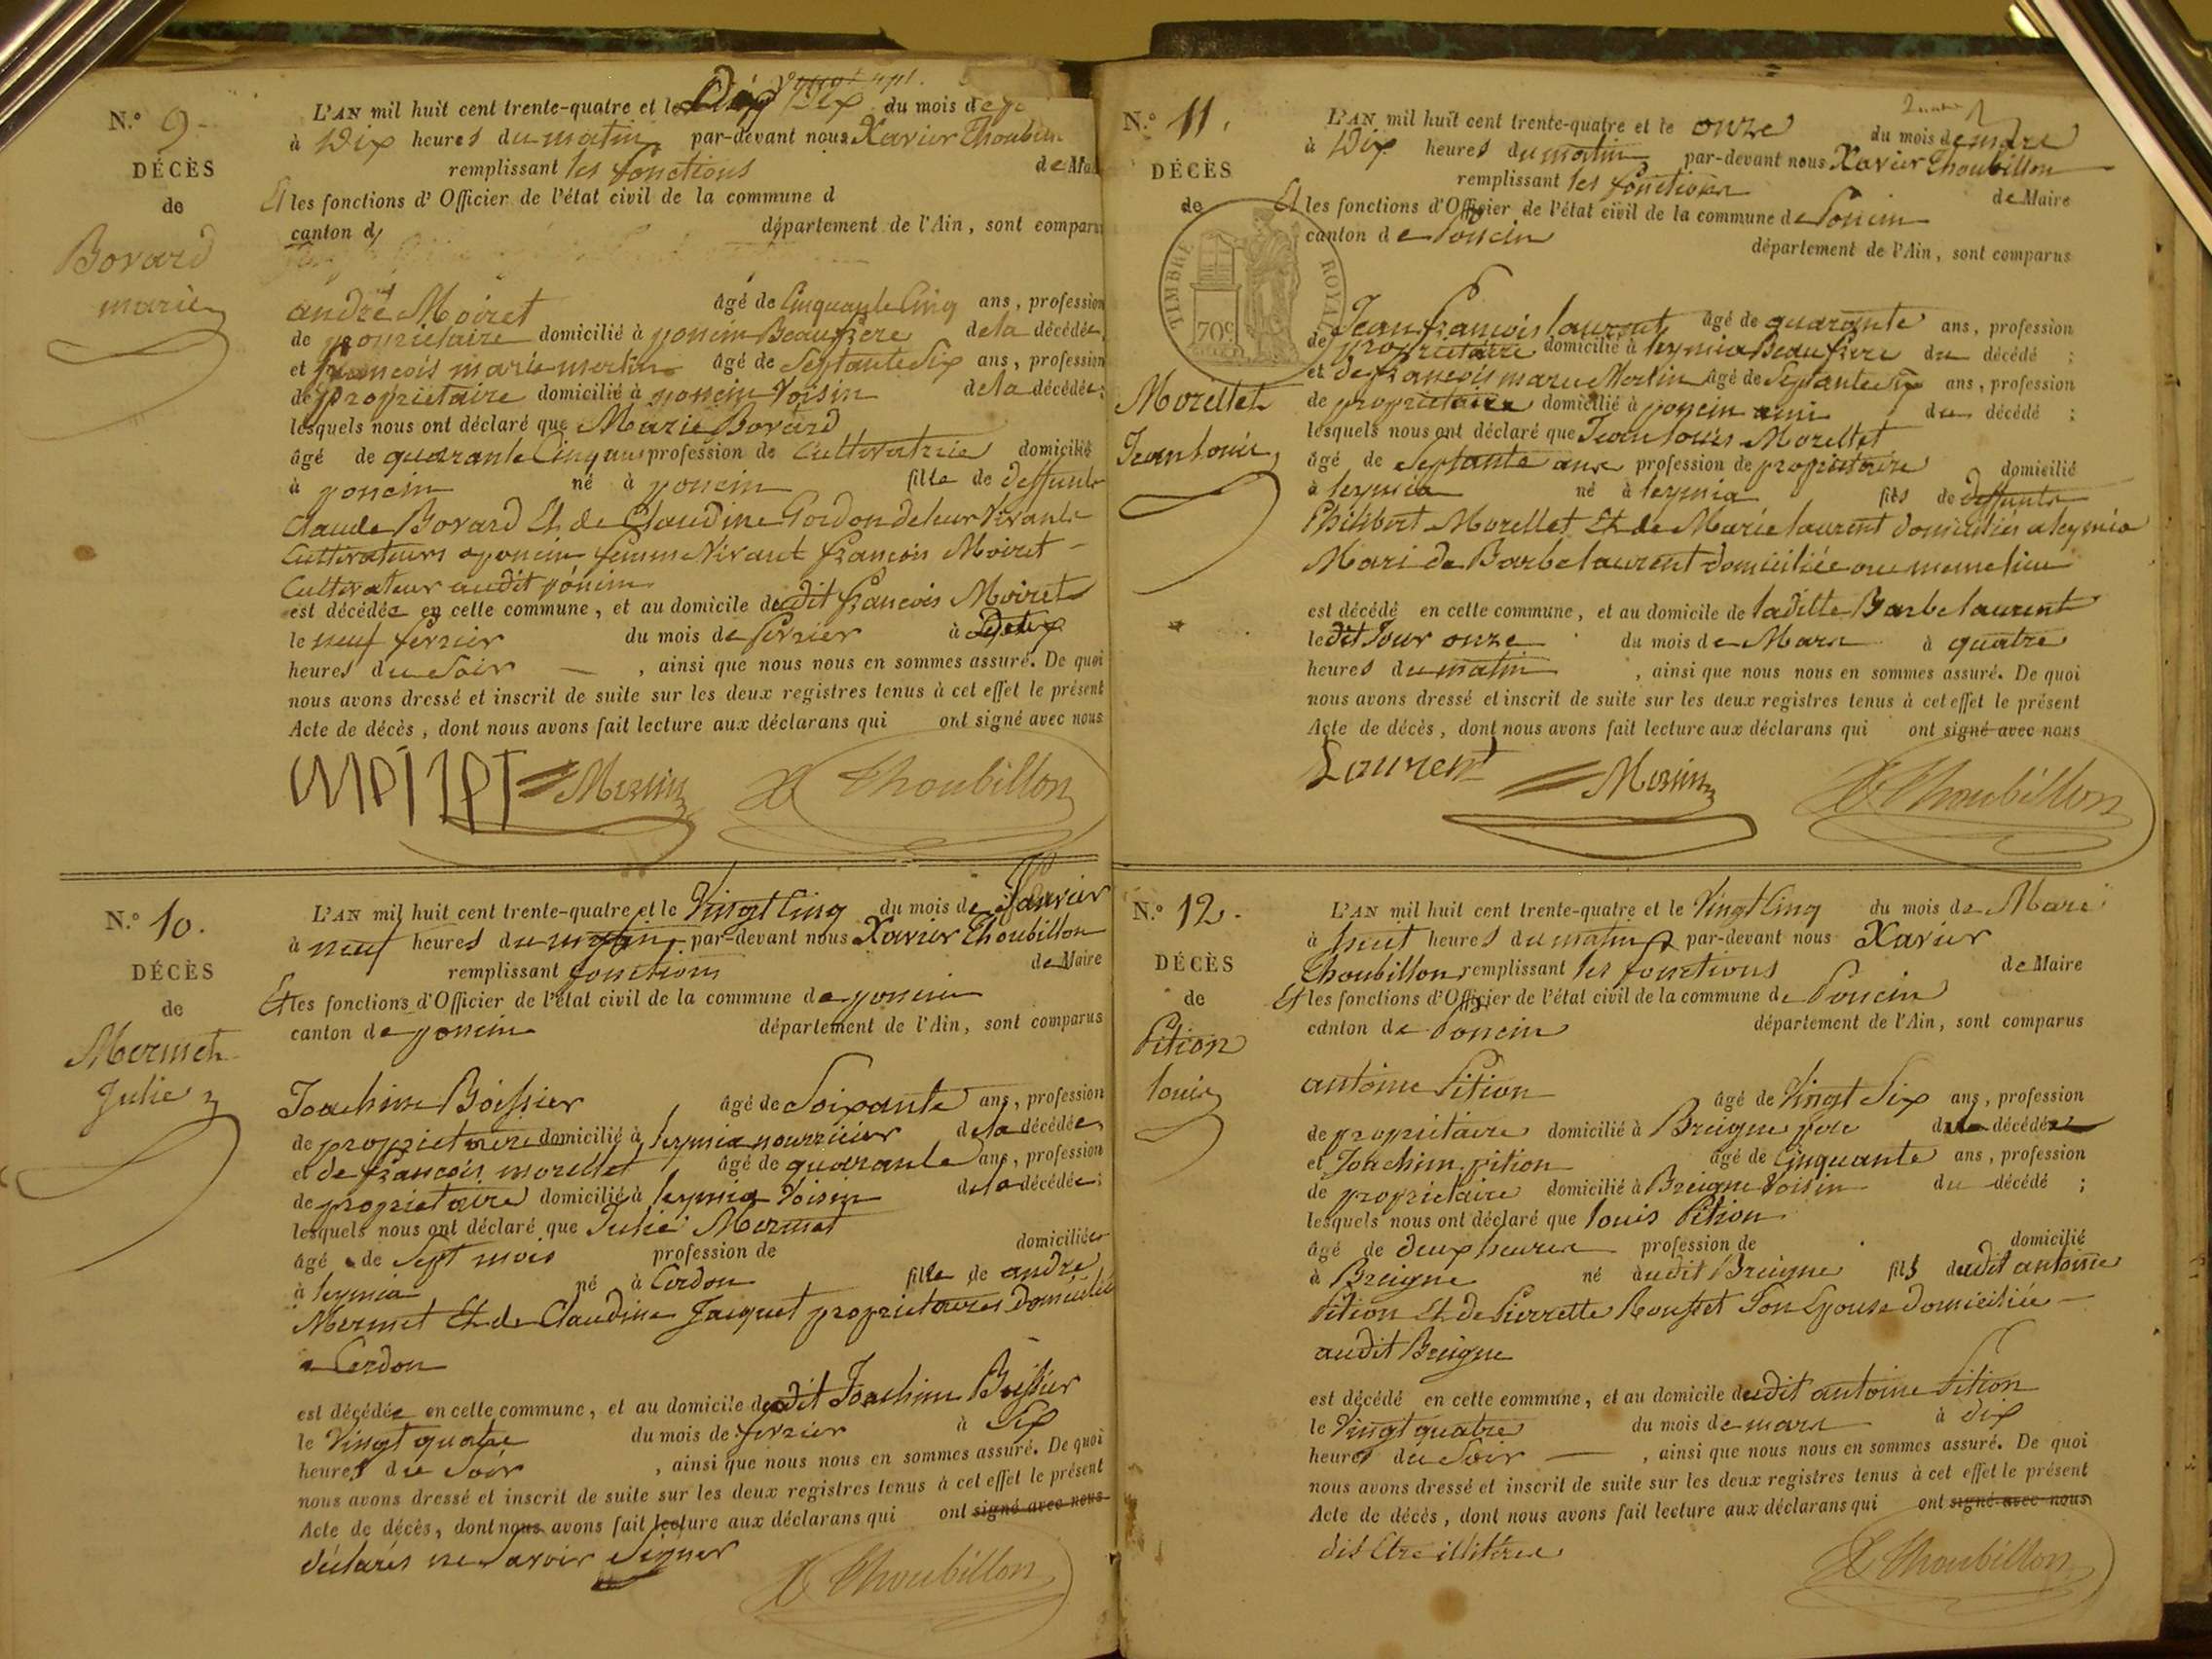 N.° 9.
DÉCÈS
de
Bovard
marie
L'AN mil huit cent trente-quatre et le Dix du mois de
à Dix heures du matin par-devant nous Xavier Thoubillon
remplissant les fonctions de Maire
Et les fonctions d'Officier de l'état civil de la commune d
canton d département de l'Ain, sont comparus
andré Moiret âgé de Cinquante Cinq ans, profession
de proprietaire domicilié à poncin Beaufrere de la décédée
et francois marie merlin âgé de Septante Six ans, profession
de proprietaire domicilié à poncin Voisin de la décédée;
lesquels nous ont déclaré que Marie Bovard
âgé de quarante Cinq ans profession de Cultivatrice domicilié
à poncin né à poncin fille de deffunts
Claude Bovard Et de Claudine Gordon de leur Vivants
Cultivateurs a poncin femme Vivant françois Moiret
Cultivateur audit poncin
est décédée en cette commune, et au domicile dudit francois Moiret
le neuf fevrier du mois de fevrier à
heures du Soir, ainsi que nous nous en sommes assuré. De quoi
nous avons dressé et inscrit de suite sur les deux registres tenus à cet effet le présent
Acte de décès, dont nous avons fait lecture aux déclarans qui ont signé avec nous
MOIRET Merlin X Thoubillon
N.° 10.
DÉCÈS
de
Mermet
Julie
L'AN mil huit cent trente-quatre et le Vingt Cinq du mois de
à neuf heures du matin par-devant nous Xavier Thoubillon
remplissant fonctions de Maire
Et les fonctions d'Officier de l'état civil de la commune de poncin
canton de poncin département de l'Ain, sont comparus
Joachim Boissier âgé de Soixante ans, profession
de proprietaire domicilié à leymia nourricier de la décédée
et de francois morellet âgé de quarante ans, profession
de proprietaire domicilié à leymia Voisin de la décédée;
lesquels nous ont déclaré que Julie Mermet
âgé de Sept mois profession de domiciliée
à leymia né à Cerdon fille de andré
Mermet Et de Claudine Jacquet proprietaires domiciliés
a Cerdon
est décédée en cette commune, et au domicile dudit Joachim Boissier
le Vingt quatre du mois de fevrier à Six
heures du Soir, ainsi que nous nous en sommes assuré. De quoi
nous avons dressé et inscrit de suite sur les deux registres tenus à cet effet le présent
Acte de décès, dont nous avons fait lecture aux déclarans qui ont signé avec nous
déclarés ne Savoir Signer X Thoubillon
N.° 11.
DÉCÈS
de
TIMBRE ROYAL
70c
Morellet
Jean louis
L'AN mil huit cent trente-quatre et le onze du mois de mars
à Dix heures du matin par-devant nous Xavier Thoubillon
remplissant les fonctions de Maire
Et les fonctions d'Officier de l'état civil de la commune de Poncin
canton de Poncin département de l'Ain, sont comparus
Jean francois laurent âgé de quarante ans, profession
de proprietaire domicilié à leymia Beaufrere du décédé;
et de francois marie Merlin âgé de Septante Six ans, profession
de proprietaire domicilié à poncin ami du décédé;
lesquels nous ont déclaré que Jean louis Morellet
âgé de Septante ans profession de proprietaire domicilié
à leymia né à leymia fils de deffunts
Philibert Morellet Et de Marie laurent domiciliés a leymia
Mari de Barbe laurent domiciliée au meme lieu
est décédé en cette commune, et au domicile de ladite Barbe laurent
le dit Jour onze du mois de Mars à quatre
heures du matin, ainsi que nous nous en sommes assuré. De quoi
nous avons dressé et inscrit de suite sur les deux registres tenus à cet effet le présent
Acte de décès, dont nous avons fait lecture aux déclarans qui ont signé avec nous
Laurent Merlin X Thoubillon
N.° 12.
DÉCÈS
de
Pition
louis
L'AN mil huit cent trente-quatre et le Vingt Cinq du mois de Mars
à huit heures du matin par-devant nous Xavier
Thoubillon remplissant les fonctions de Maire
Et les fonctions d'Officier de l'état civil de la commune de Poncin
canton de Poncin département de l'Ain, sont comparus
antoine Pition âgé de Vingt Six ans, profession
de proprietaire domicilié à Breigne pere du décédé
et Joachim pition âgé de Cinquante ans, profession
de proprietaire domicilié à Breigne Voisin du décédé;
lesquels nous ont déclaré que louis Pition
âgé de deux heures profession de domicilié
à Breigne né audit Breigne fils dudit antoine
Pition Et de Pierrette Rousset Son Epouse domiciliée
audit Breigne
est décédé en cette commune, et au domicile dudit antoine Pition
le Vingt quatre du mois de mars à dix
heures du Soir, ainsi que nous nous en sommes assuré. De quoi
nous avons dressé et inscrit de suite sur les deux registres tenus à cet effet le présent
Acte de décès, dont nous avons fait lecture aux déclarans qui ont signé avec nous
dis Etre illitéres X Thoubillon